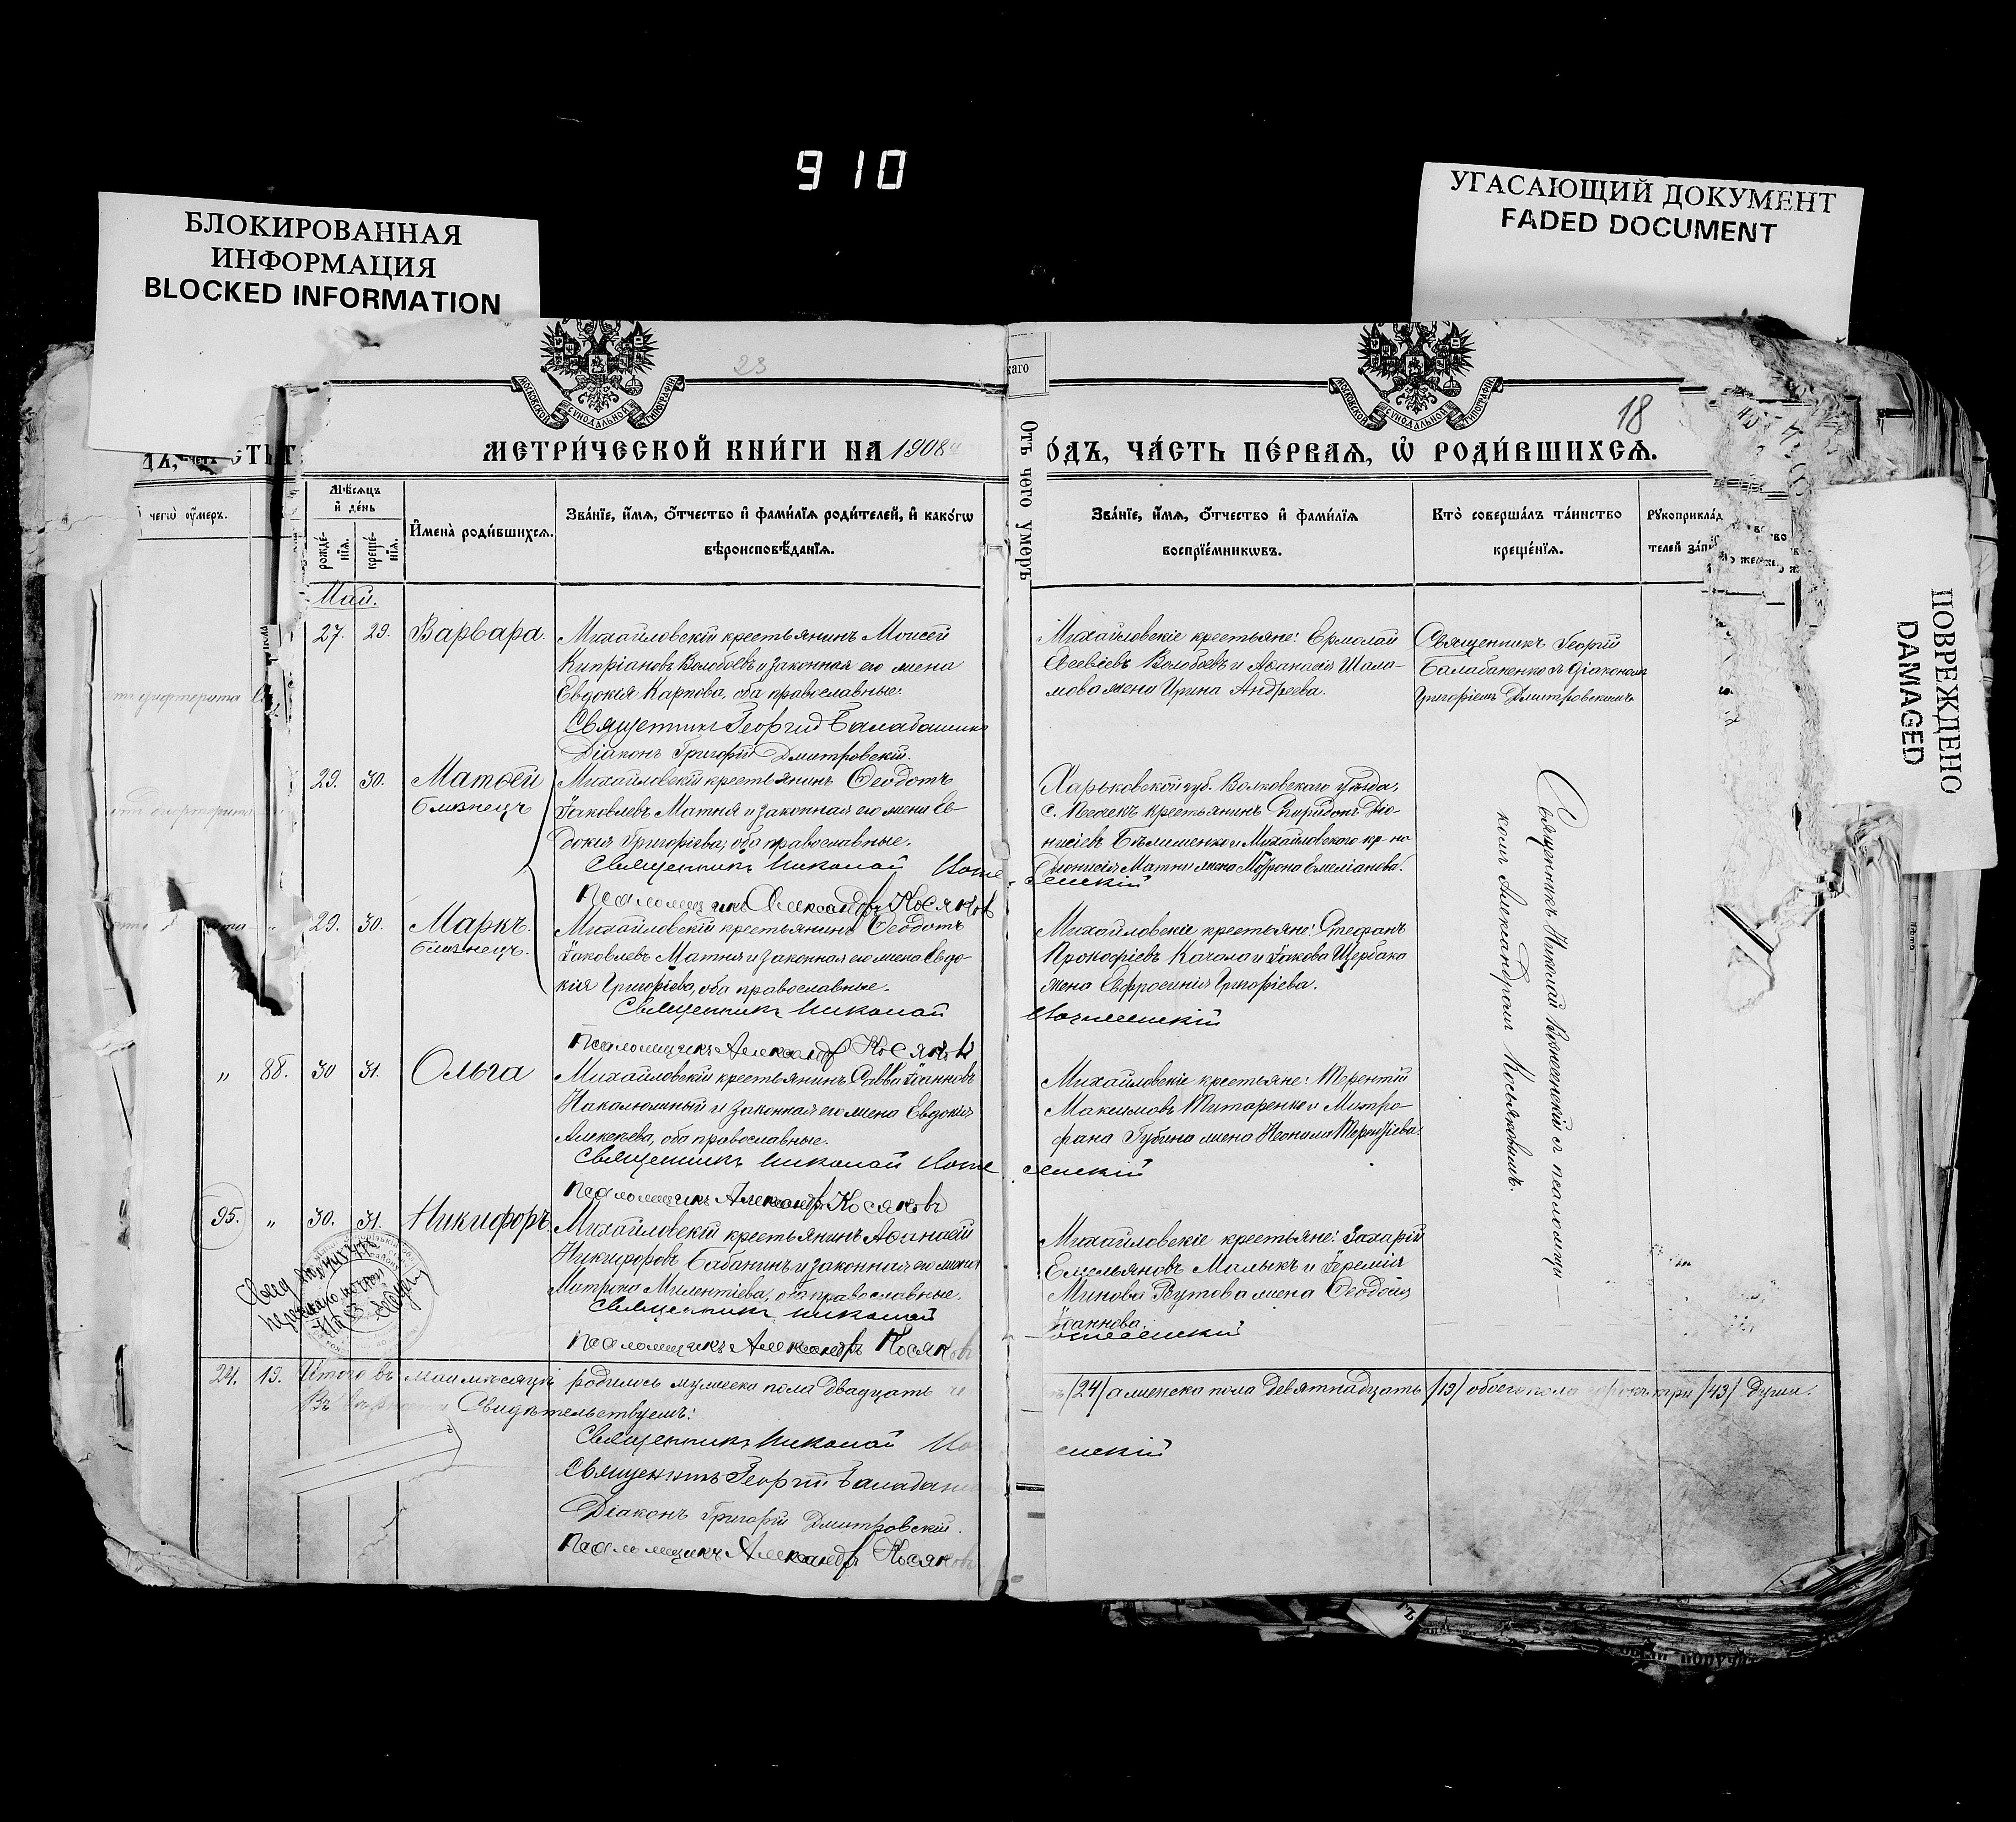 910
БЛОКИРОВАННАЯ
ИНФОРМАЦИЯ
BLOCKED INFORMATION
УГАСАЮЩИЙ ДОКУМЕНТ
FADED DOCUMENT
ПОВРЕЖДЕНО
DAMAGED
23
18
МОСКОВСКОЙ СѴНОДАЛЬНОЙ ТИПОГРАФІИ
МОСКОВСКОЙ СѴНОДАЛЬНОЙ ТИПОГРАФІИ
МЕТРИ́ЧЕСКОЙ КНИ́ГИ НА 1908
ОДЪ, ЧА́СТЬ ПЕ́РВАЯ, Ѡ РОДИ́ВШИХСЯ.
чегѡ ᲂумеръ.
Мѣсяцъ и день
рожде́нїя.
креще́нїя.
Имена̀ роди́вшихся.
Зва́нїе, имя, отчество и фами́лїя роди́телей, и како́гѡ
вѣроисповѣданїя.
каго
Отъ чего умеръ
Зва́нїе, имя, отчество и фами́лїя
воспрїе́мникѡвъ.
Кто̀ соверша́лъ та́инство
креще́нїя.
Рукоприкла́д
телей за́пи
Май.
27. 29. Варвара.
Михайловскій крестьянинъ Моисей
Кипріановъ Волобоевъ и законная его жена
Евдокія Карпова, оба православные.
Священникъ Георгій Балабаненко
Діаконъ Григорій Дмитровскій.
Михайловскіе крестьяне: Ермолай
Евсевіевъ Волобоевъ и Аѳанасія Шала-
мова жена Ирина Андреева.
Священникъ Георгій
Балабаненко съ діакономъ
Григоріемъ Дмитровскимъ
29. 30. Матѳей
близнецъ
Михайловскій крестьянинъ Ѳеодотъ
Іаковлевъ Матня и законная его жена Ев-
докія Григоріева, оба православные.
Священникъ Николай
Псаломщикъ Александръ Косяковъ
Харьковской губ. Волковского уѣзда,
с. Песекъ крестьянинъ Спиридонъ Діо-
нисіевъ Бѣлименко и Михайловского кр-на
Діонисія Матни жена Матрона Емеліанова.
29. 30. Маркъ.
близнецъ.
Михайловскій крестьянинъ Ѳеодотъ
Іаковлевъ Матня и законная его жена Евдо-
кія Григоріева, оба православные.
Священникъ Николай
Псаломщикъ Александръ Косяковъ
Михайловскіе крестьяне: Стефанъ
Прокофіевъ Качала и Іакова Щербака
жена Евфросинія Григоріева.
Священникъ Николай Вознесенскій съ псаломщи-
комъ Александромъ Косяковымъ.
„ 88. 30 31. Ольга
Михайловскій крестьянинъ Савва Іоанновъ
Накалюжный и законная его жена Евдокія
Алексѣева, оба православные.
Священникъ Николай
Псаломщикъ Александръ Косяковъ
Михайловскіе крестьяне: Терентій
Максимовъ Титаренко и Митро-
фана Губина жена Неонила Терентіева.
95. „ 30. 31. Никифоръ.
Михайловскій крестьянинъ Аѳанасій
Никифоровъ Бабанинъ и законная его жена
Матрона Милентіева, оба православные.
Священникъ Николай
Псаломщикъ Александръ Косяковъ
Михайловскіе крестьяне: Захарій
Емельяновъ Малыкъ и Іеремія
Минова Реутова жена Ѳеодосія
Іоаннова.
24. 19. Итого въ маѣ мѣсяцѣ родилось мужеска пола двадцать
/24/ а женска пола девятнадцать /19/ обоего пола сорокъ три /43/ души.
Свидѣтельствуемъ:
Священникъ Николай
Священникъ Георгій Балабан
Діаконъ Григорій Дмитровскій.
Псаломщикъ Александръ Косяковъ